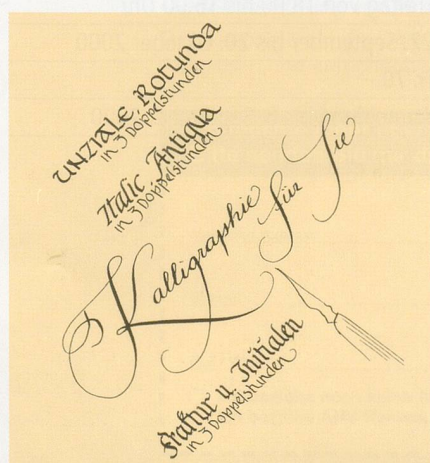 UNZIALE Rotunda
in 3 Doppelstunden
Italic Antiqua
in 3 Doppelstunden
Kalligraphie für Sie
Fraktur u. Initialen
in 3 Doppelstunden